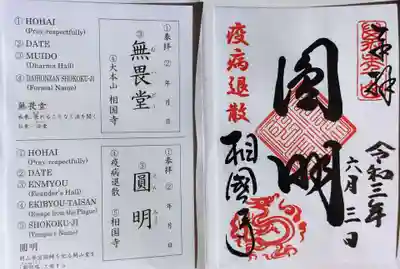 ① HOHAI
(Pray respectfully)
② DATE
③ MUIDO
(Dharma Hall)
④ DAIHONZAN SHOKOKU-JI
(Formal Name)
無畏堂
①奉拝 ②年月日
③無畏堂
④大本山 相国寺
① HOHAI
(Pray respectfully)
② DATE
③ ENMYOU
(Founder's Hall)
④ EKIBYOU-TAISAN
(Escape from the Plague)
⑤ SHOKOKU-JI
(Temple's Name)
圓明
①奉拝 ②年月日
③圓明
④疫病退散 ⑤相国寺
奉拝
令和三年
六月三日
圓明
疫病退散
相國寺